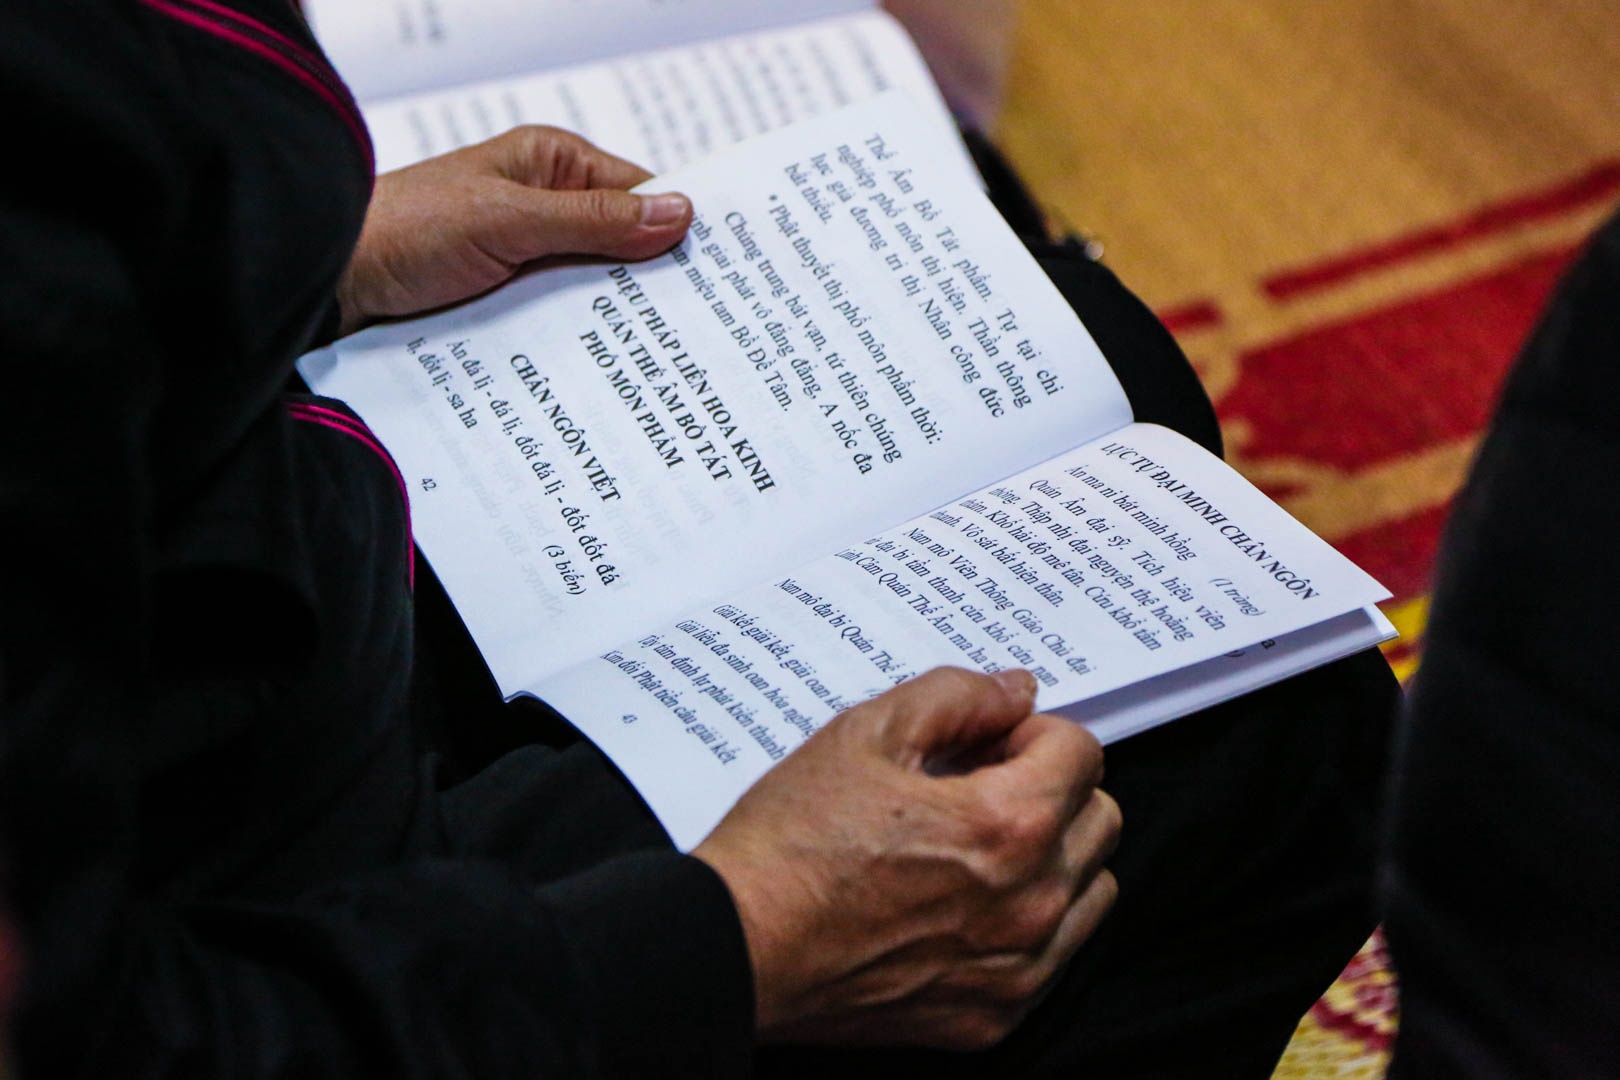 Thế Âm Bồ Tát phẩm. Tự tại chi
nghiệp phổ môn thị hiện. Thần thông
lực giả đương tri thị Nhân công đức
bất thiểu.
* Phật thuyết thị phổ môn phẩm thời:
Chúng trung bát vạn, tứ thiên chúng
sinh giai phát vô đẳng đẳng, A nốc đa
tam miệu tam Bồ Đề Tâm.
DIỆU PHÁP LIÊN HOA KINH
QUÁN THẾ ÂM BỒ TÁT
PHỔ MÔN PHẨM
CHÂN NGÔN VIẾT
Án đá lị - đá lị, đốt đá lị - đốt đốt đá
lị, đốt lị - sa ha
(3 biến)
42
LỤC TỰ ĐẠI MINH CHÂN NGÔN
Án ma ni bát minh hồng
(1 tràng)
Quán Âm đại sỹ. Tích hiệu viên
thông. Thập nhị đại nguyện thệ hoằng
thâm. Khổ hải độ mê tân. Cứu khổ tầm
thanh. Vô sát bất hiện thân.
Nam mô Viên Thông Giáo Chủ đại
đại bi tầm thanh cứu khổ cứu nạn
Linh Cảm Quán Thế Âm ma ha
Nam mô đại bi Quán Thế
Giải kết giải kết, giải oan kết
Giải liễu đa sinh oan hóa nghiệp
Tẩy tâm định lự phát kiền thành
Kim đối Phật tiền cầu giải kết
43